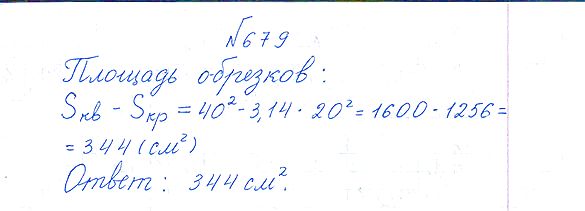 №679
Площадь обрезков:
Sкв - Sкр = 40² - 3,14 · 20² = 1600 - 1256 =
= 344 (см²)
Ответ: 344 см².